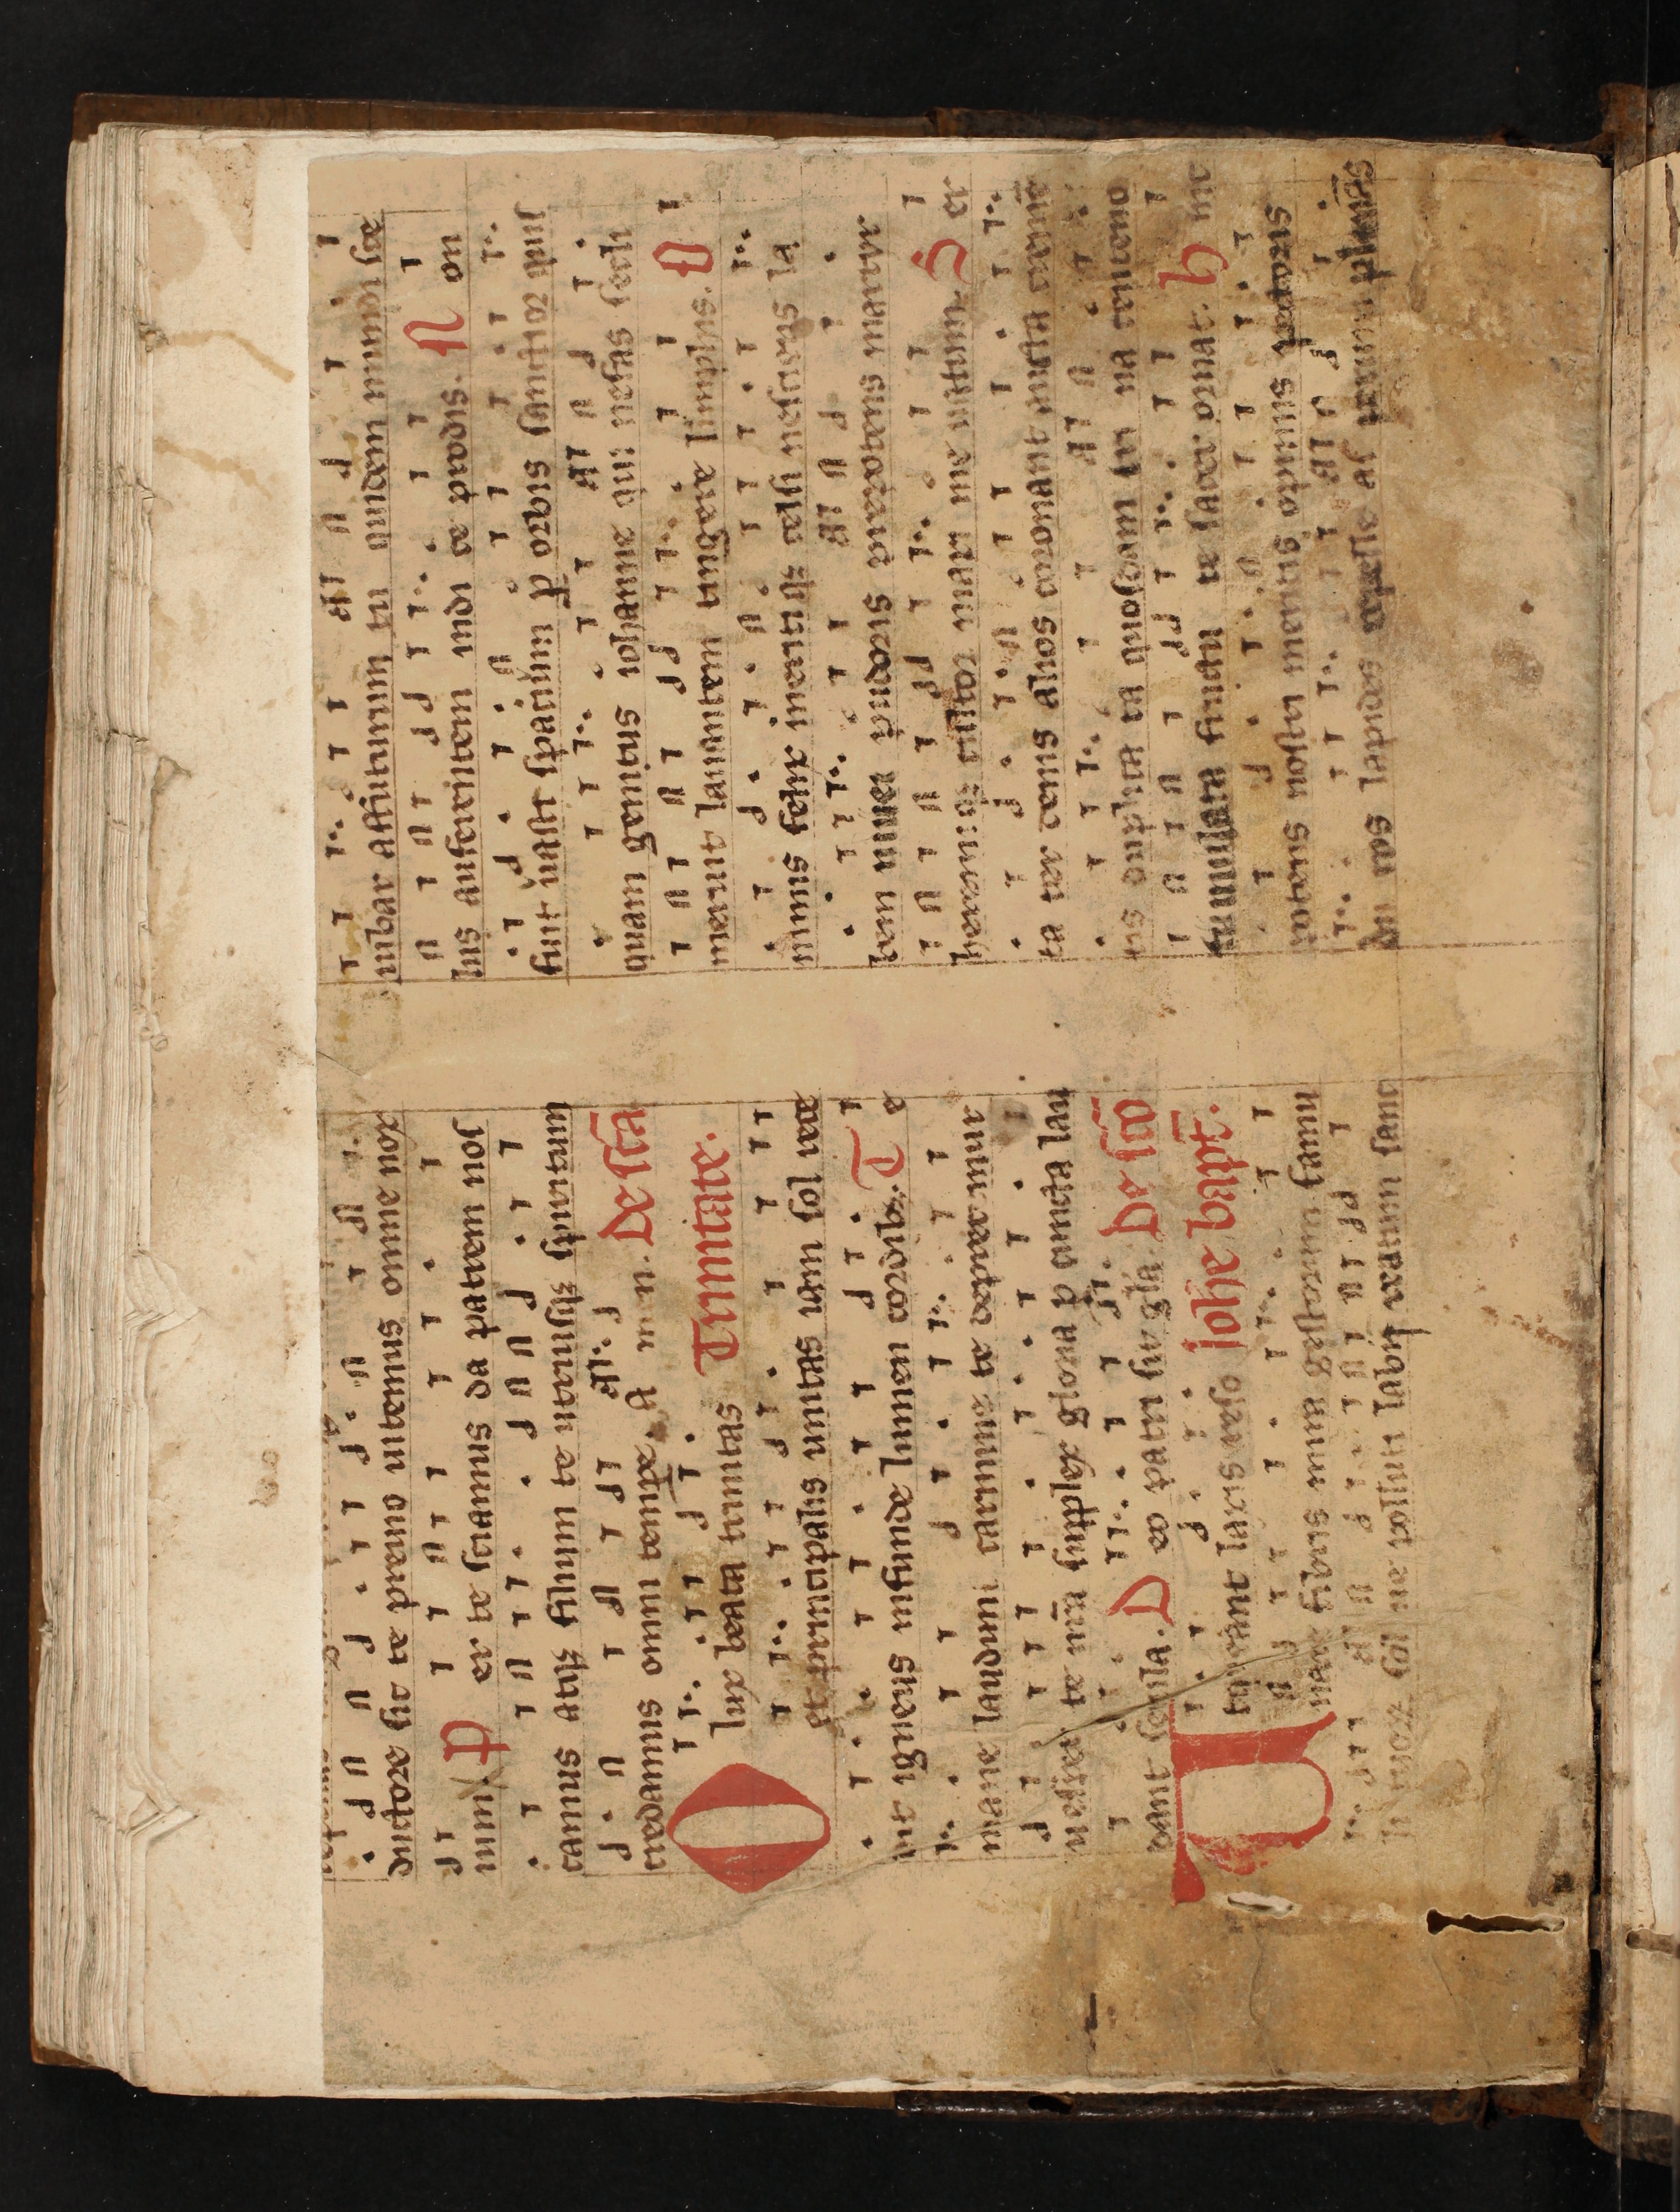 ductore sic te preuio uitemus omne nox
ium. P er te sciamus da patrem nos
camus atq; filium te utriusq; spiritum
credamus omni tempe. A m e n. De scā
Trinitate.
O lux beata trinitas
et principalis unitas iam sol rece
dit igneus infunde lumen cordib;. T e
mane laudum carmine te deprecemur
uespere te nr̄a supplex gloria p cuncta lau
dant secula. D eo patri sit gl̄a. De sc̄o
Johe bapt̄.
U t queant laxis reso
nare fibris mira gestorum famu
li tuorum solue polluti labij reatum sanc
iubar affuturum tu quidem mundi sce
lus auferentem indi ce prodis. N on
fuit uasti spacium p orbis sanctior quis
quam genitus iohanne qui nefas secli
meruit lauantem tingere limphis. O
nimis felix meritiq; celsi nesciens la
bem niuei pudoris prepotens martir
heremiq; cultor maxi me uatum. S er
ta ter denis alios coronant aucta cremē
tis duplicata quosdam tri na centeno
cumulata fructu te sacer ornat. h nc
potens nostri meritis opimis pectoris
du ros lapides repelle as perum planās